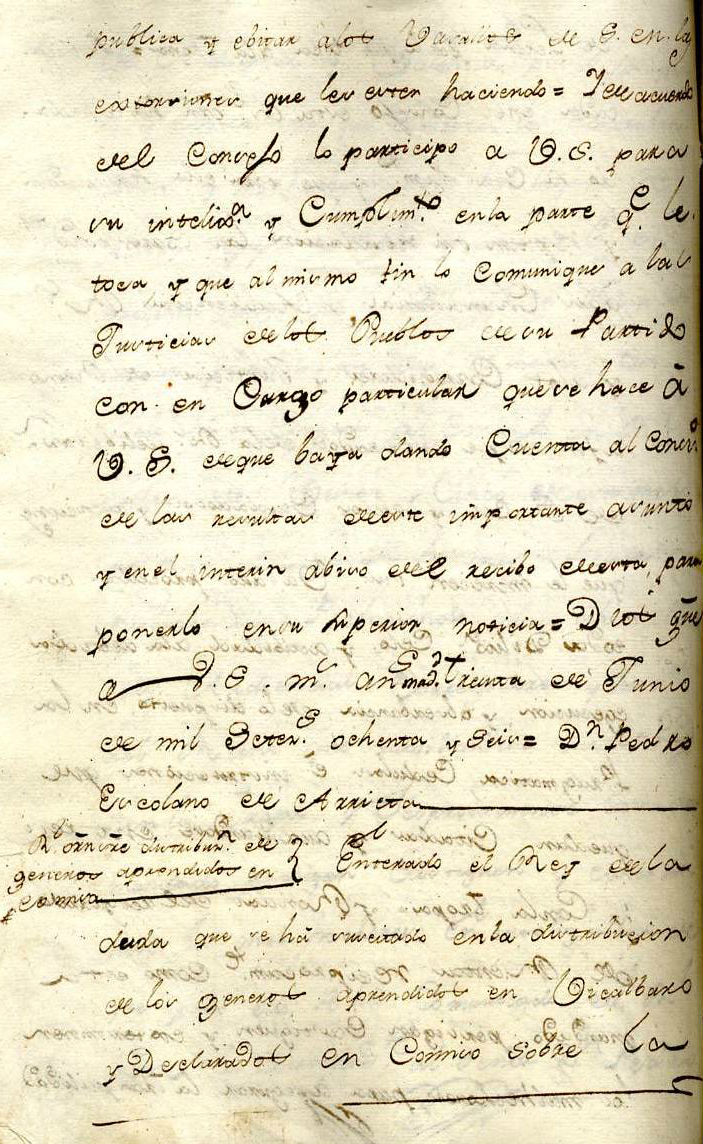 publica y ebitar alos Vasallos de S. en las
extorsiones que les esten haciendo = Y de acuerdo
del Consejo lo participo a V. S. para
su inteliga.n y Cumplim.to en la parte q.e le
toca, y que al mismo fin lo Comunique a las
Justicias de los Pueblos de su Partido
con en Cargo particular que se hace â
V. S. de que baya dando Cuenta al Consejo
de las resultas de este importante asunto
y en el interin abiso del recibo de esta, para
ponerlo en su superior noticia = Dios gûe
a V. S. m.s an.s Mad.d treinta de Junio
de mil Setez.s ochenta y Seis = D.n Pedro
Escolano de Arrieta
R.l orñ sre distribuz.n de
generos aprendidos en
Comiso
Enterado el Rey de la
duda que se hâ suscitado en la distribucion
de los generos aprendidos en Vicalbaro
y Declarados en Comiso sobre la